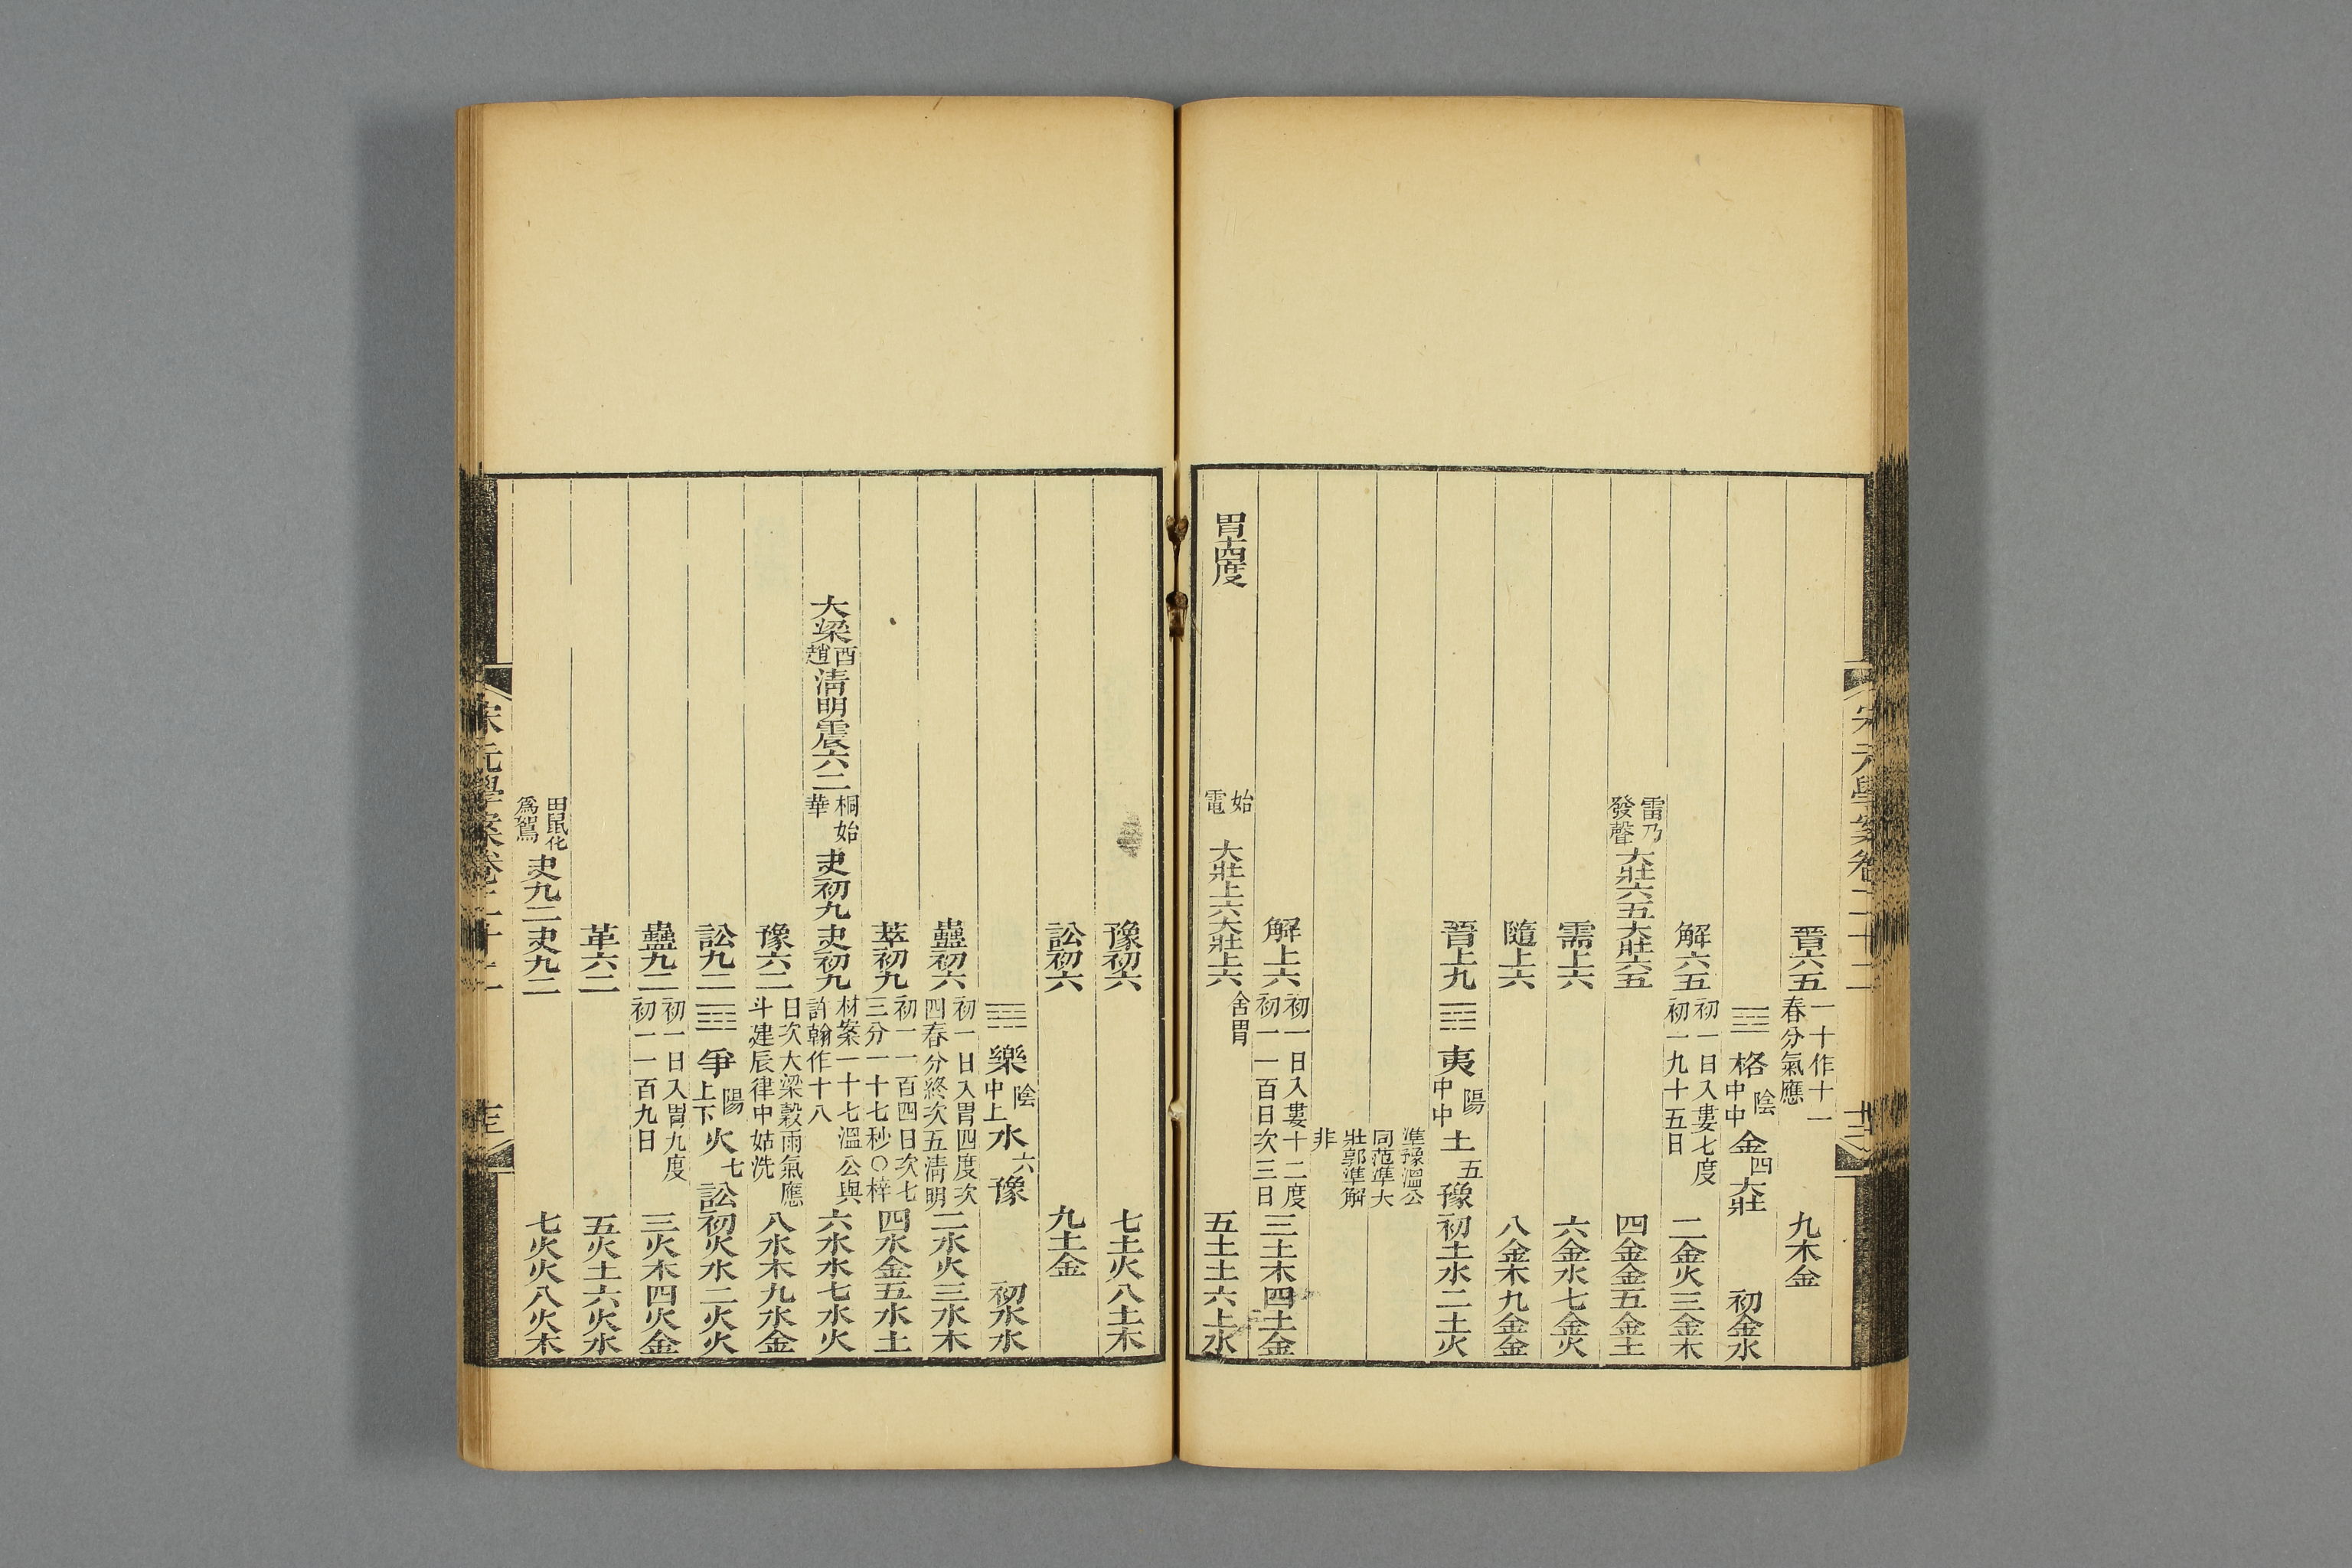 宋元學案卷二十二
晉六五 一十作十一 春分氣應 九木金
格 陰 中中 金 四 大壯 初金水
解六五 初一日入婁七度 初一九十五日 二金火三金木
雷乃發聲 大壯六五大壯六五 四金金五金土
需上六 六金水七金火
隨上六 八金木九金金
晉上九 夷 陽 中中 土 五 豫 初土水二土火
準豫溫公
同范準大
壯郭準解
非
解上六 初一日入婁十二度 初一一百日次三日 三土木四土金
胃十四度 始電 大壯上六大壯上六 舍胃 五土土六土水
豫初六 七土火八土木
訟初六 九土金
樂 陰 中上 水 六 豫 初水水
蠱初六 初一日入胃四度次四春分終次五清明 二水火三水木
萃初九 初一一百四日次七三分一十七秒○梓 四水金五水土
大梁 酉 趙 清明震六二 桐始華 夬初九夬初九 材案一十七溫公與許翰作十八 六水水七水火
豫六二 日次大梁穀雨氣應斗建辰律中姑洗 八水木九水金
訟九二 爭 陽 上下 火 七 訟 初火水二火火
蠱九二 初一日入胃九度 初一一百九日 三火木四火金
革六二 五火土六火水
田鼠化為鴽 夬九二夬九二 七火火八火木
宋元學案卷二十二